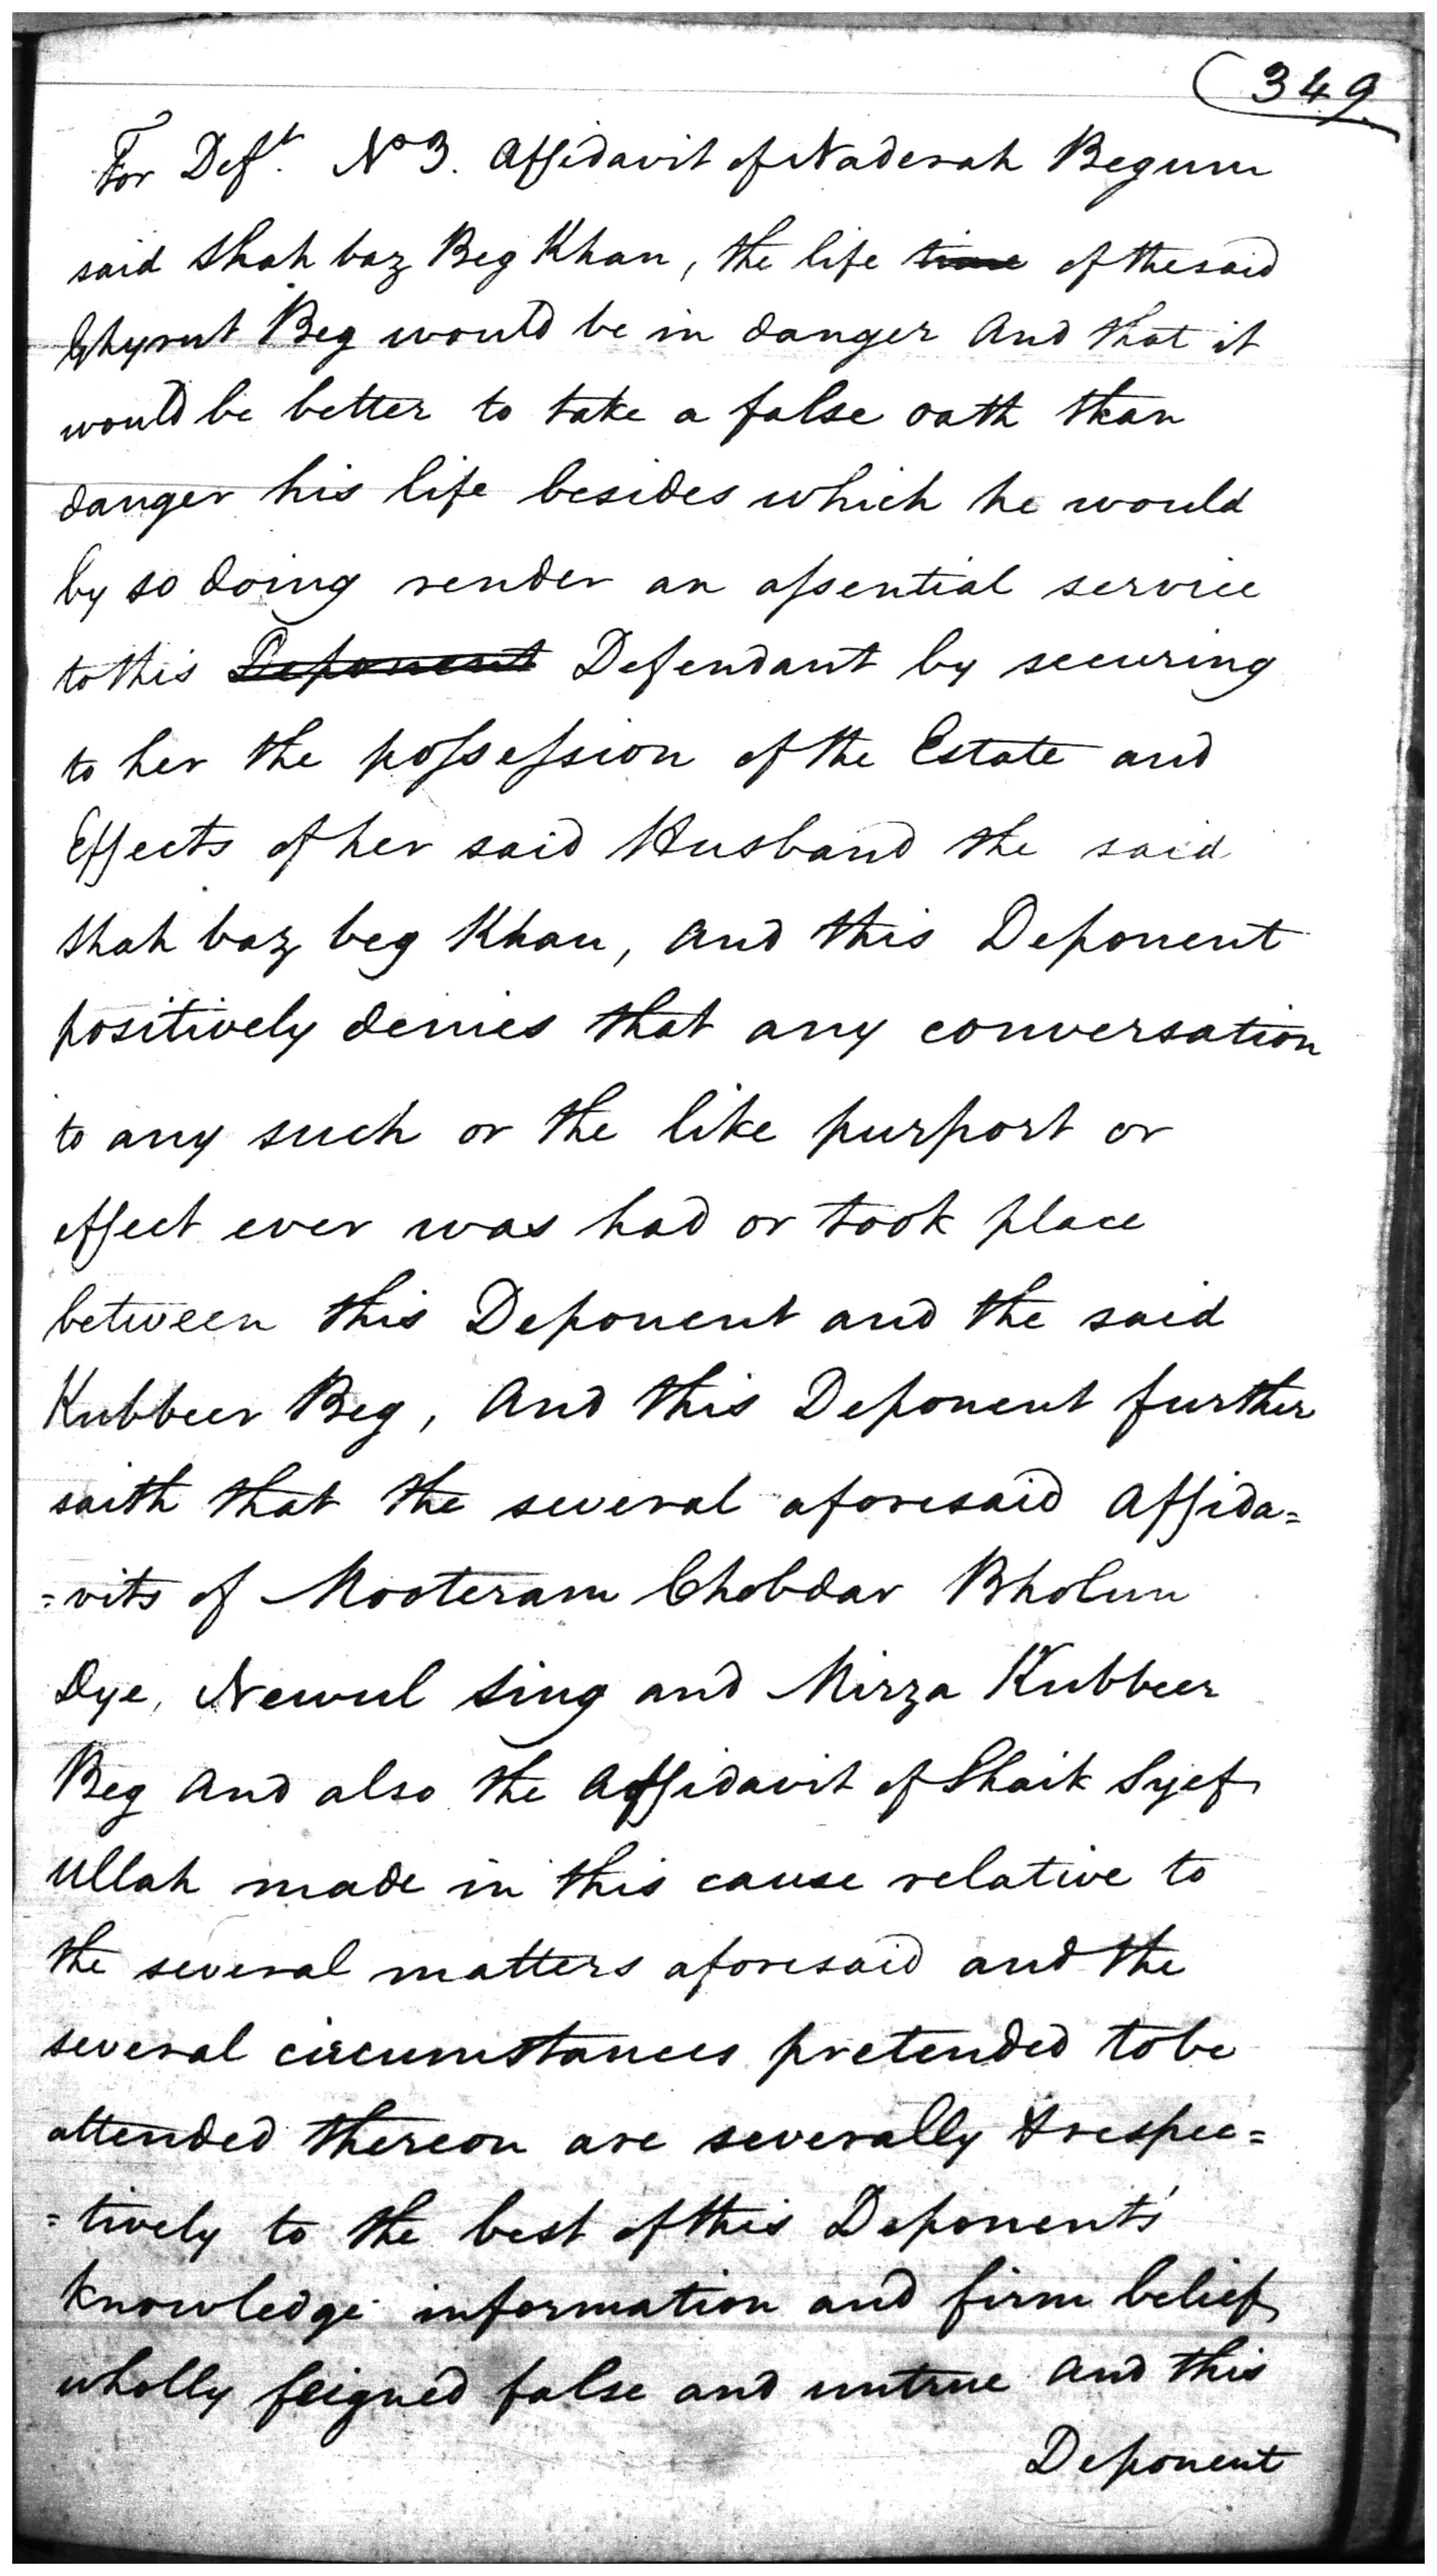 349
For Deft. No 3. Affidavit of Naderah Begum
said Shah baz Beg Khan, the life time of the said
Ghyrut Beg would be in danger And that it
would be better to take a false oath than
danger his life besides which he would
by so doing render an assential service
to this Deponent Defendant by securing
to her the possession of the Estate and
Effects of her said Husband the said
Shah baz beg Khan, And this Deponent
positively denies that any conversation
to any such or the like purport or
effect ever was had or took place
between this Deponent and the said
Kubbeer Beg, And this Deponent further
saith that the several aforesaid Affida=
=vits of Mooteram Chobdar Bholun
Dye, Newul Sing and Mirza Kubbeer
Beg And also the Affidavit of Shaik Syef
Ullah made in this cause relative to
the several matters aforesaid and the
several circumstances pretended to be
attended thereon are severally & respec=
=tively to the best of this Deponent's
knowledge information and firm belief
wholly feigned false and untrue And this
Deponent